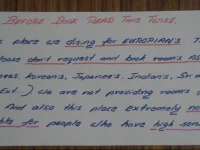 BEFORE BOOK READ THIS TWICE.
place we dising for EUROPIANS
don't request and book rooms
Koreans, Japanees, Indians, Sri
Ext..) We are not providing rooms
And also this place Extremely no
for people who have high